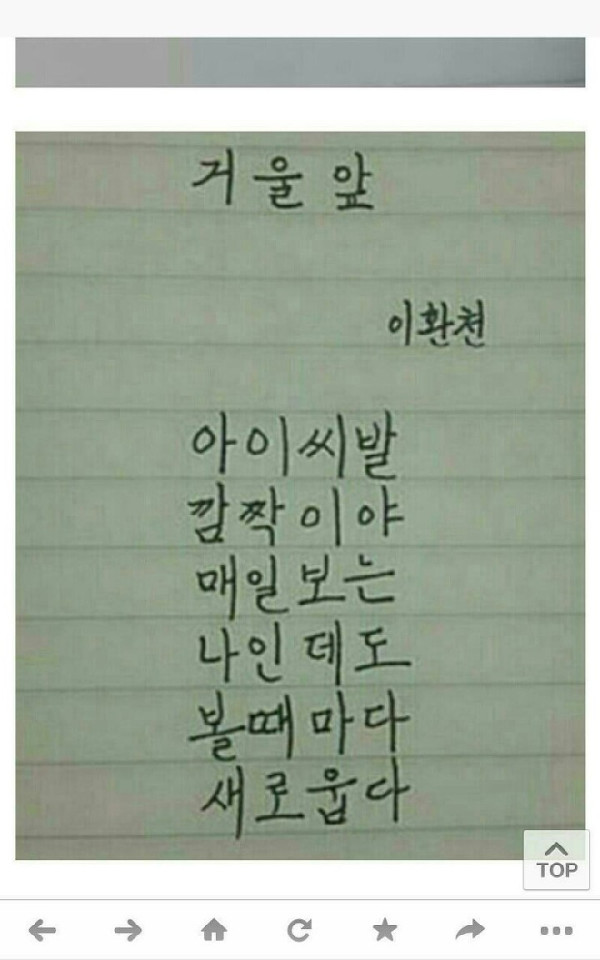 거울 앞
이환천
아이씨발
깜짝이야
매일보는
나인데도
볼때마다
새로웁다
TOP